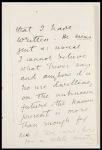 that I have
written. He seems
just as usual
I cannot believe
what Trevor says
and anyhow it is
no use dwelling
on the unknown
future. the known
present is more
than enough for